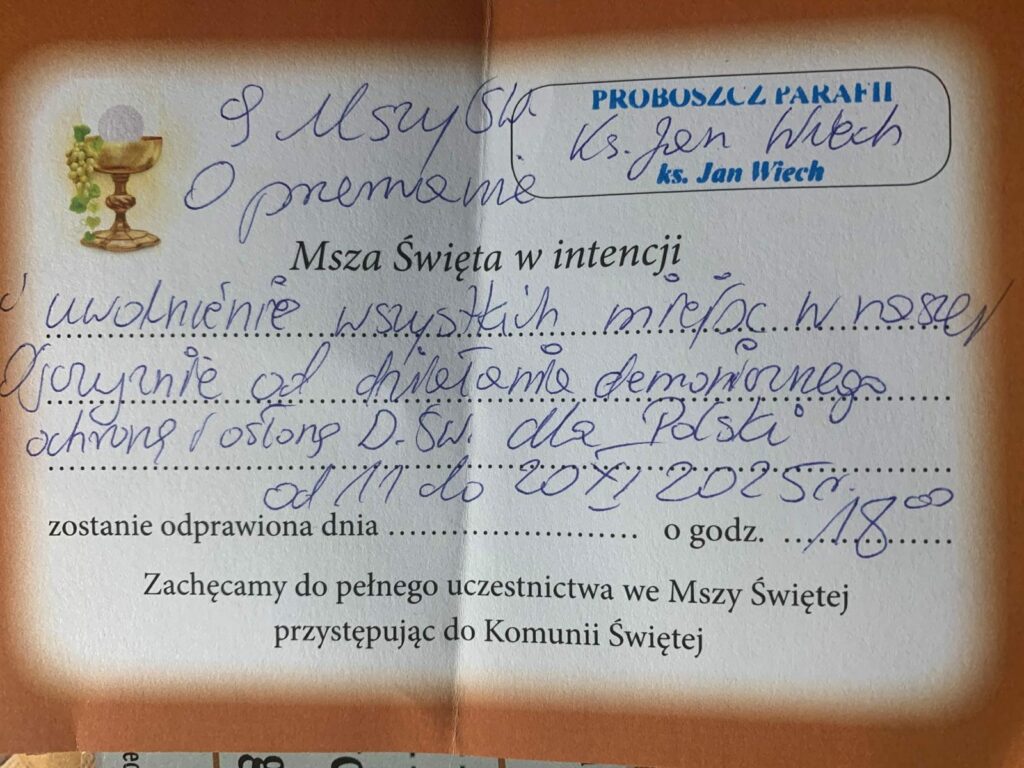 9 Mszy Św.
O przemianę
PROBOSZCZ PARAFII
Ks. Jan Wiech
ks. Jan Wiech
Msza Święta w intencji
i uwolnienie wszystkich miejsc w naszej
Ojczyźnie od działania demonicznego
ochronę i osłonę D. Św. dla Polski
od 11 do 20 XI 2025 r.
zostanie odprawiona dnia o godz. 18 00
Zachęcamy do pełnego uczestnictwa we Mszy Świętej
przystępując do Komunii Świętej